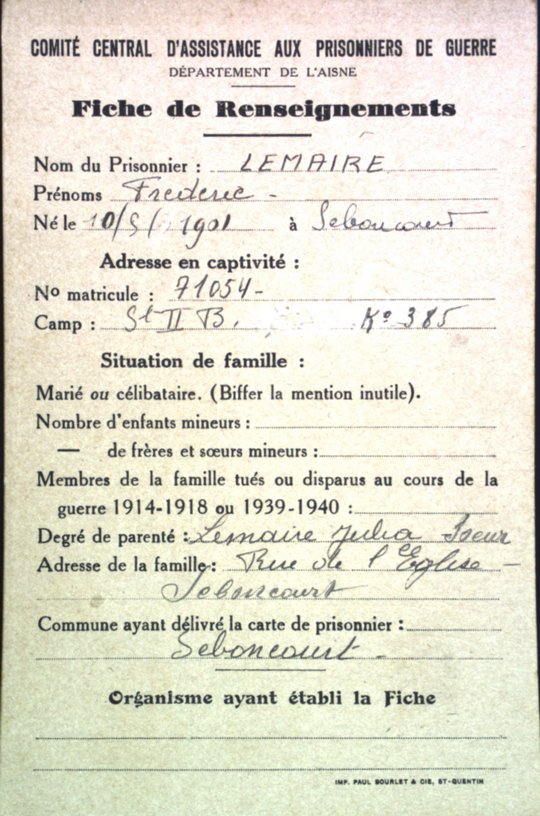 COMITÉ CENTRAL D'ASSISTANCE AUX PRISONNIERS DE GUERRE
DÉPARTEMENT DE L'AISNE
Fiche de Renseignements
Nom du Prisonnier : LEMAIRE
Prénoms Frédéric -
Né le 10/5/1901 à Seboncourt
Adresse en captivité :
No matricule : 71054-
Camp : St II B. Ko 385
Situation de famille :
Marié ou célibataire. (Biffer la mention inutile).
Nombre d'enfants mineurs :
— de frères et sœurs mineurs :
Membres de la famille tués ou disparus au cours de la
guerre 1914-1918 ou 1939-1940 :
Degré de parenté : Lemaire Julia Soeur
Adresse de la famille : Rue de l'Eglise -
Seboncourt
Commune ayant délivré la carte de prisonnier :
Seboncourt -
Organisme ayant établi la Fiche
IMP. PAUL BOURLET & CIE, ST-QUENTIN